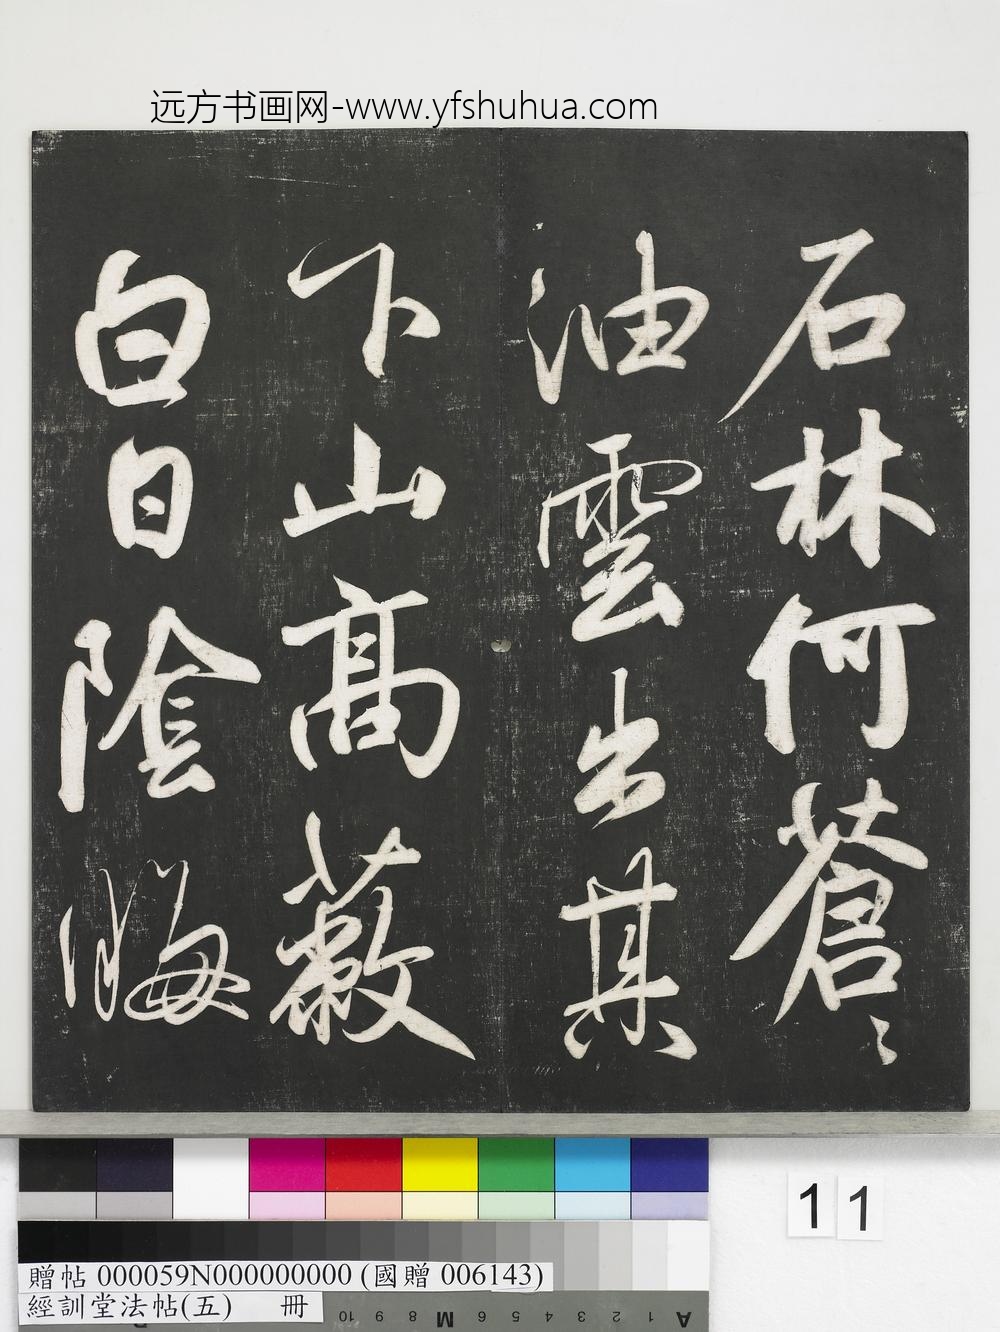 远方书画网-www.yfshuhua.com
石林何蒼〻
油雲出其
下山高蔽
白日陰晦
11
贈帖 000059N000000000 (國贈 006143)
經訓堂法帖(五) 冊
10 9 8 M 6 5 4 3 2 1 A